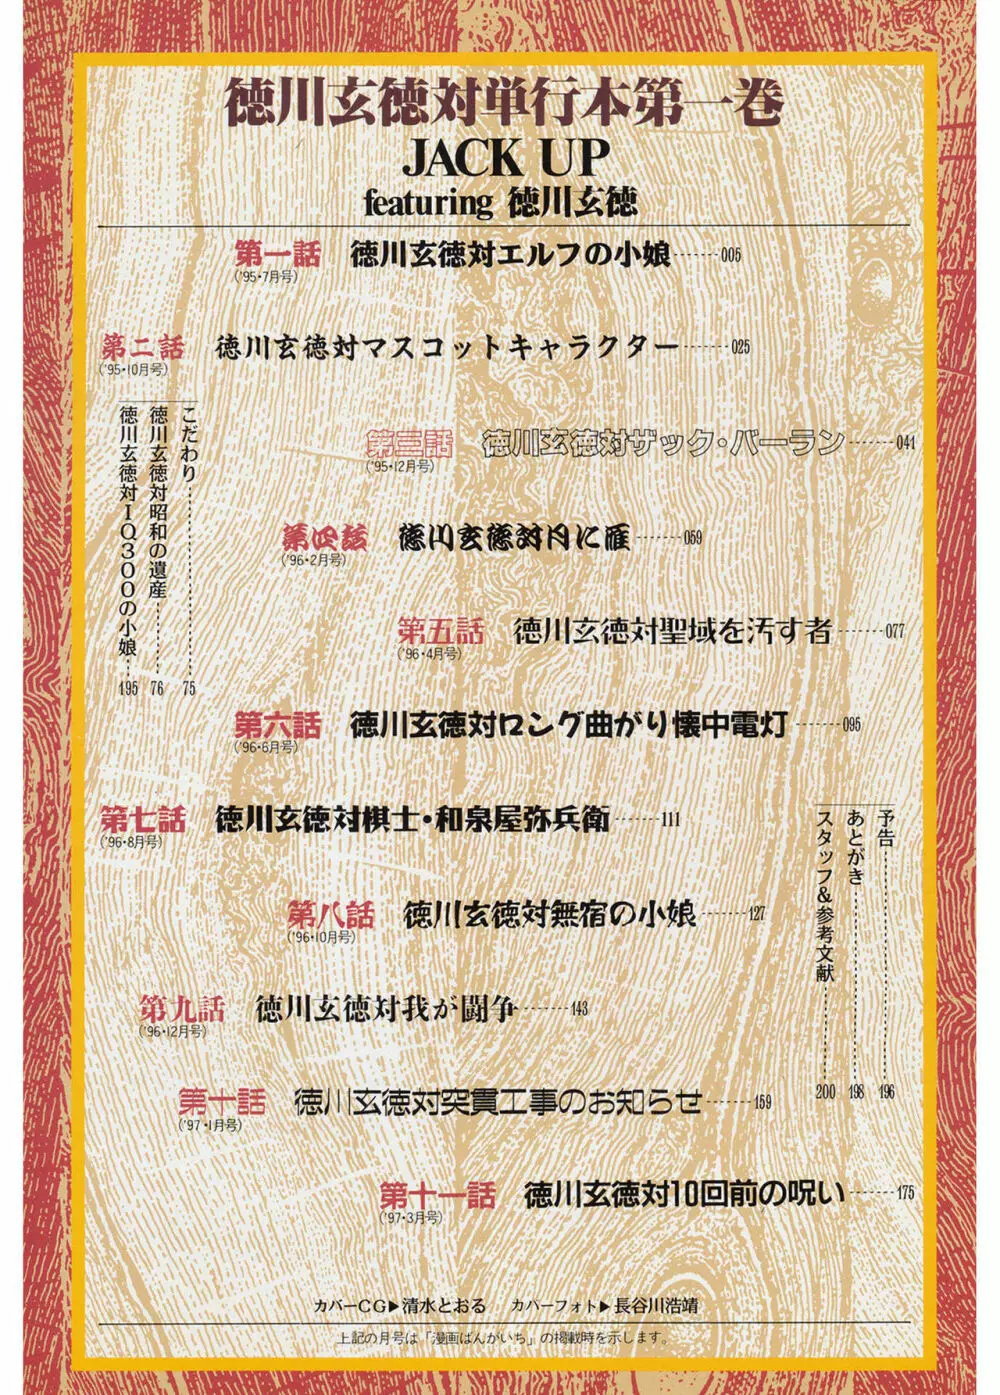 徳川玄徳対単行本第一巻
JACK UP
featuring 徳川玄徳
第一話 徳川玄徳対エルフの小娘……005
('95・7月号)
第二話 徳川玄徳対マスコットキャラクター……025
('95・10月号)
第三話 徳川玄徳対ザック・バーラン……041
('95・12月号)
第四話 徳川玄徳対月に雁……059
('96・2月号)
第五話 徳川玄徳対聖域を汚す者……077
('96・4月号)
第六話 徳川玄徳対ロング曲がり懐中電灯……095
('96・6月号)
第七話 徳川玄徳対棋士・和泉屋弥兵衛……111
('96・8月号)
第八話 徳川玄徳対無宿の小娘……127
('96・10月号)
第九話 徳川玄徳対我が闘争……143
('96・12月号)
第十話 徳川玄徳対突貫工事のお知らせ……159
('97・1月号)
第十一話 徳川玄徳対10回前の呪い……175
('97・3月号)
こだわり……75
徳川玄徳対昭和の遺産……76
徳川玄徳対IQ300の小娘……195
予告……196
あとがき……198
スタッフ&参考文献……200
カバーCG▶清水とおる カバーフォト▶長谷川浩靖
上記の月号は「漫画ばんがいち」の掲載時を示します。